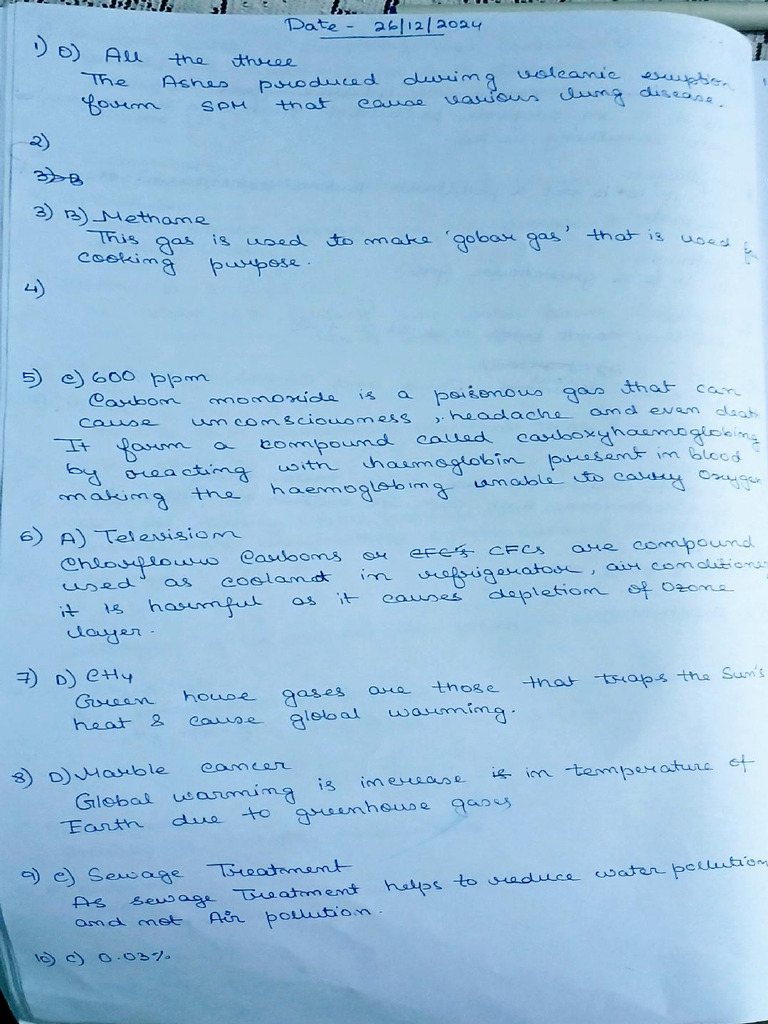 Date - 26/12/2024
1) D) All the three
The Ashes produced during volcanic eruption
form SPM that cause various lung disease.
2)
3) B
3) B) Methane
This gas is used to make 'gobar gas' that is used
cooking purpose.
4)
5) c) 600 ppm
Carbon monoxide is a poisonous gas that can
cause unconsciousness, headache and even deat
It form a compound called carboxyhaemoglobing
by reacting with haemoglobin present in blood
making the haemoglobing unable to carry Oxygen
6) A) Television
Chlorflouro Carbons or CFC's CFCs are compound
used as coolant in refrigerator, air conditions
it is harmful as it causes depletion of Ozone
layer.
7) D) CH4
Green house gases are those that traps the Sun's
heat & cause global warming.
8) D) Marble cancer
Global warming is increase is in temperature of
Earth due to greenhouse gases
9) c) Sewage Treatment
As sewage Treatment helps to reduce water pollution
and not Air pollution.
10) c) 0.03%